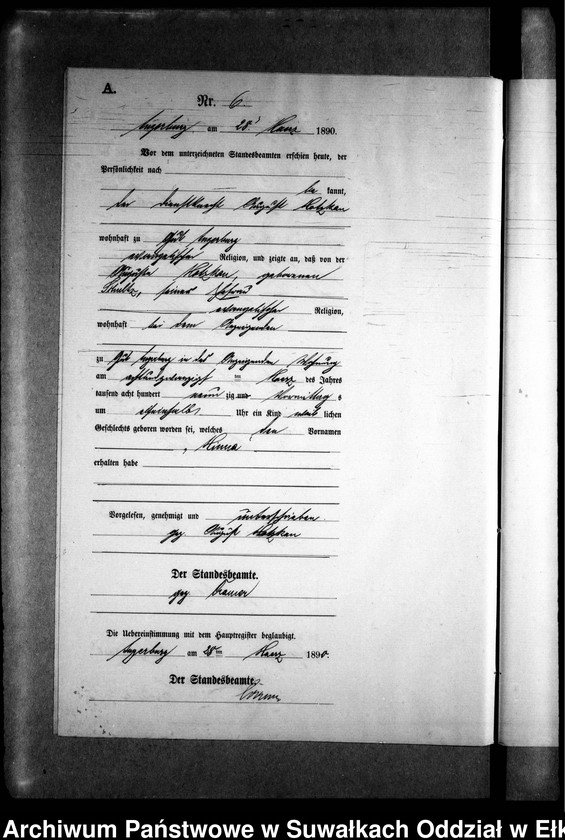 A.
Nr. 6
Angerburg am 28 Maerz 1890.
Vor dem unterzeichneten Standesbeamten erschien heute, der
Persönlichkeit nach
be kannt,
der Dienstknecht August Kotzkan
wohnhaft zu Gut Angerburg
evangelischer Religion, und zeigte an, daß von der
Auguste Kotzkan, geborenen
Schultz, seiner Ehefrau
evangelischer Religion,
wohnhaft bei dem Anzeigenden
zu Gut Angerburg in des Anzeigenden Wohnung
am achtundzwanzigsten Maerz des Jahres
tausend acht hundert neun zig und Vormittag s
um Uhr ein Kind weib lichen
Geschlechts geboren worden sei, welches den Vornamen
Minna
erhalten habe
Vorgelesen, genehmigt und unterschrieben.
gez. August Kotzkan
Der Standesbeamte.
gez.
Die Uebereinstimmung mit dem Hauptregister beglaubigt.
Angerburg am 28ten Maerz 1890.
Der Standesbeamte.
Archiwum Państwowe w Suwałkach Oddział w Ełk